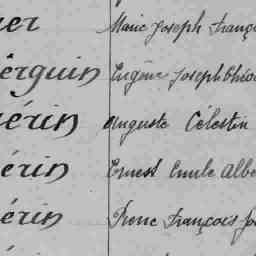 er Marie Joseph Franço
erguin Eugène Joseph Théo
érin Auguste Célestin
érin Ernest Emile Albe
érin Irene François Jo